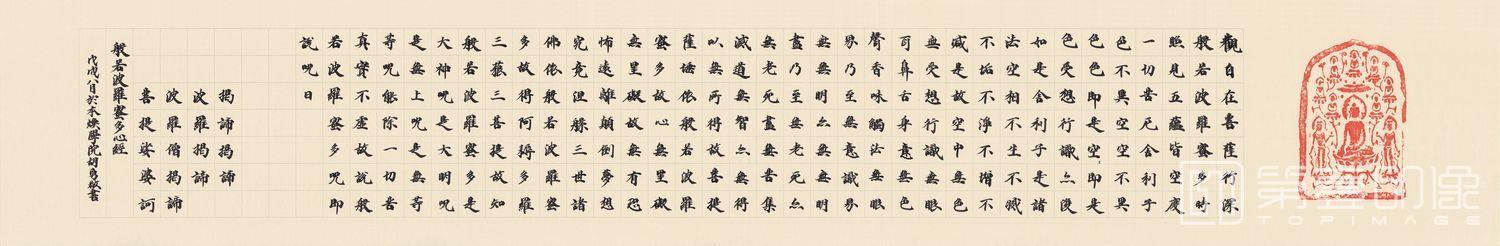 觀自在菩薩行深
般若波羅蜜多時
照見五蘊皆空度
一切苦厄舍利子
色不異空空不異
色色即是空空即是
色受想行識亦復
如是舍利子是諸
法空相不生不滅
不垢不淨不增不
減是故空中無色
無受想行識無眼
耳鼻舌身意無色
聲香味觸法無眼
界乃至無意識界
無無明亦無無明
盡乃至無老死亦
無老死盡無苦集
滅道無智亦無得
以無所得故菩提
薩埵依般若波羅
蜜多故心無罣礙
無罣礙故無有恐
怖遠離顛倒夢想
究竟涅槃三世諸
佛依般若波羅蜜
多故得阿耨多羅
三藐三菩提故知
般若波羅蜜多是
大神呪是大明呪
是無上呪是無等
等呪能除一切苦
真實不虛故說般
若波羅蜜多呪即
說呪曰
揭諦揭諦
波羅揭諦
波羅僧揭諦
菩提娑婆訶
般若波羅蜜多心經
戊戌八月於木 學院胡勇敬書
第壹印像
TOPIMAGE